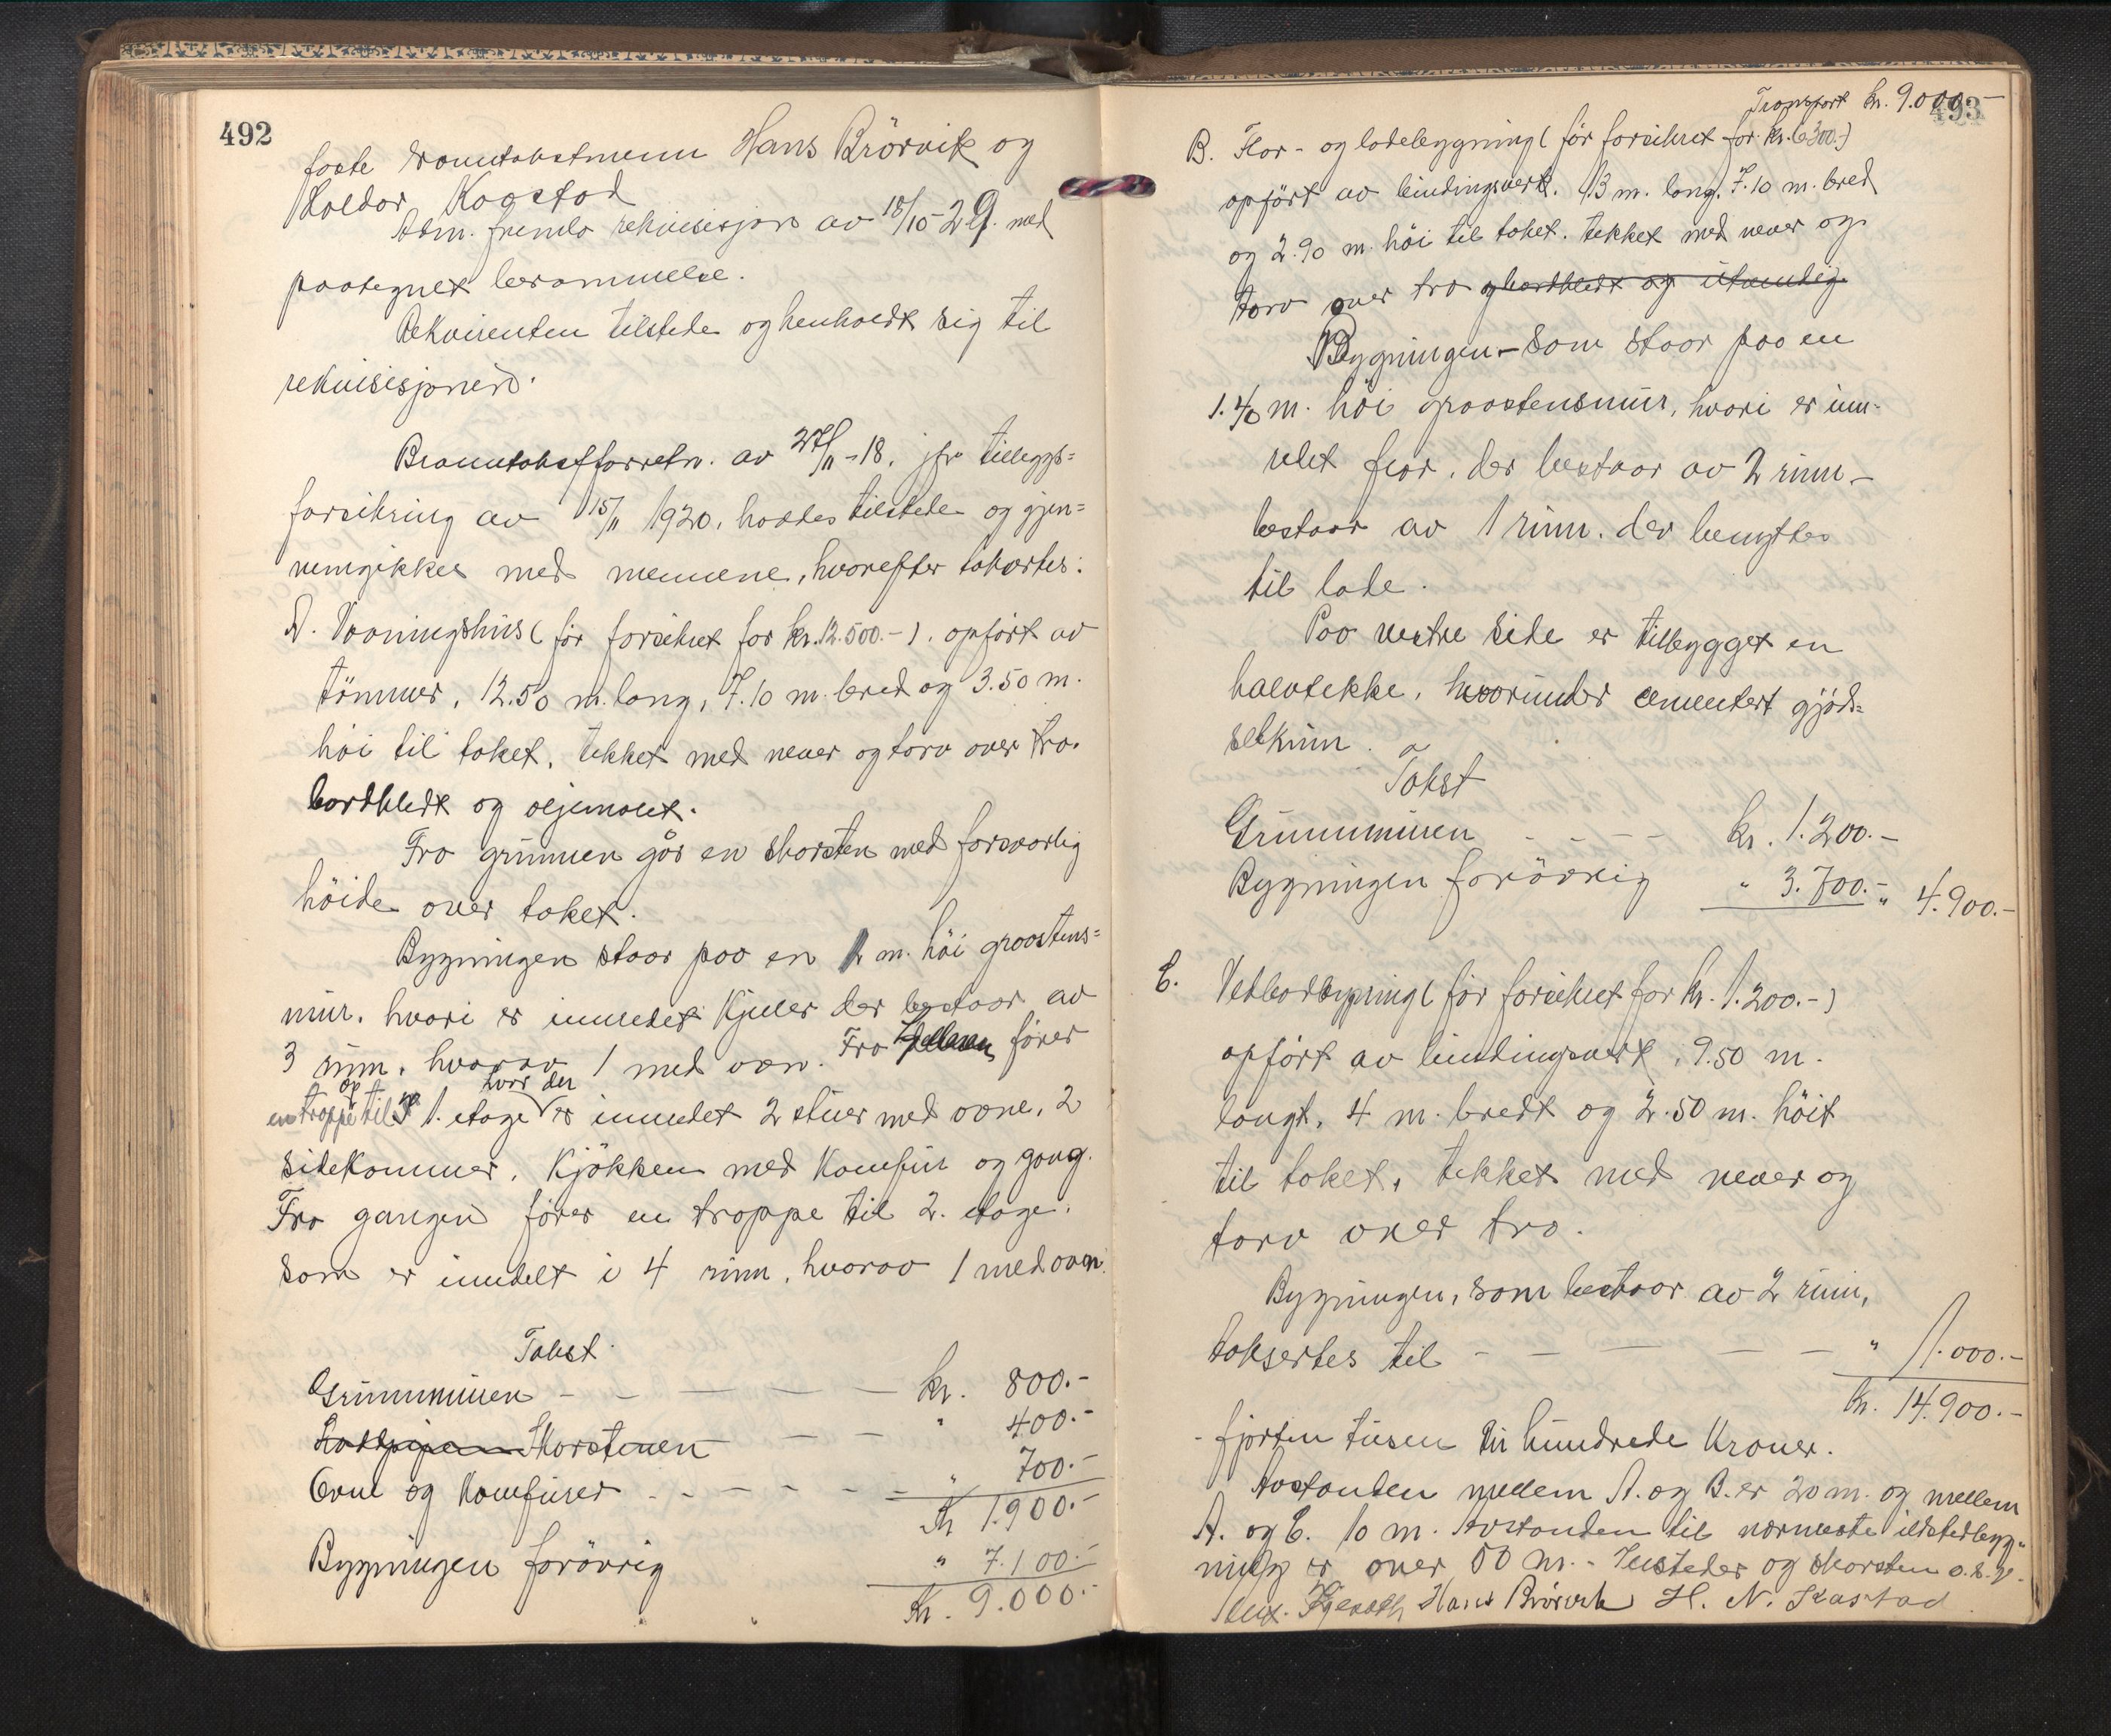 492
faste branntakstmenn Hans Brörvik og
Haldor Kaastad
Adm. fremla rekvisisjon av 18/10-29 med
paategnet berammelse.
Rekvirenten tilstede og henholdt sig til
rekvisisjonen.
Branntakstforretn. av 27/11-18, jfr tilleggs=
forsikring av 15/11 1920, hades tilstede og gjen=
nemgikkes med mennene, hvorefter taksertes:
A. Vaaningshus (för forsikret for kr. 12.500.-). opfört av
tömmer, 12.50 m. lang, 7.10 m. bred og 3.50 m.
höi til taket, tekket med never og torv over tro.
bordkledt og oljemalt.
Fra grunnen går en skorsten med forsvarlig
höide over taket.
Bygningen staar paa en 2 m. höi graastens=
mur. hvori er innredet kjeller der bestaar av
3 rum, hvorav 1 med ovn. Fra kjelleren förer
en trappe op til 1. etage hvor der er innredet 2 stuer med ovne, 2
sidekammer, kjökken med komfur og gang.
Fra gangen förer en trappe til 2. etage.
som er inndelt i 4 rum, hvorav 1 med ovn.
Takst.
Grunnmuren - - - - - kr. 800.-
Skorstenen - - - " 400.-
Ovne og Komfurer - - - - - " 700.-
Kr 1.900.-
Bygningen forövrig " 7.100.-
Kr. 9.000.-
493
Transport kr. 9.000.-
B. Flor- og ladebygning (för forsikret for kr. 6300.-)
opfört av bindingsverk. 13 m. lang, 7.10 m. bred
og 2.90 m. höi til taket. tekket med never og
torv over tro og bordkledt og utvendig
Bygningen - som staar paa en
1.40 m. höi graastensmur, hvori er inn-
redet flor, der bestaar av 2 rum -
bestaar av 1 rum. der benyttes
til lade.
Paa vestre side er tilbygget en
halvtekke, hvorunder cementert gjöd=
selkum.
Takst
Grunnmuren - - - - kr. 1.200.-
Bygningen forövrig " 3.700.- " 4.900.-
C. Vedbodbygning (för forsikret for kr. 1.200.-)
opfört av bindingsverk, 9.50 m.
langt, 4 m. bredt og 2.50 m. höit
til taket, tekket med never og
torv over tro.
Bygningen, som bestaar av 2 rum,
taksertes til - - - - - " 1.000.-
Kr. 14.900.-
- fjorten tusen ni hundrede Kroner.
Avstanden mellem A. og B. er 20 m. og mellem
A. og C. 10 m. Avstanden til nærmeste ildstedbyg=
ning er over 50 m. - Ildsteder og skorsten o.s.v.
Hans Brörvik H. N. Kastad